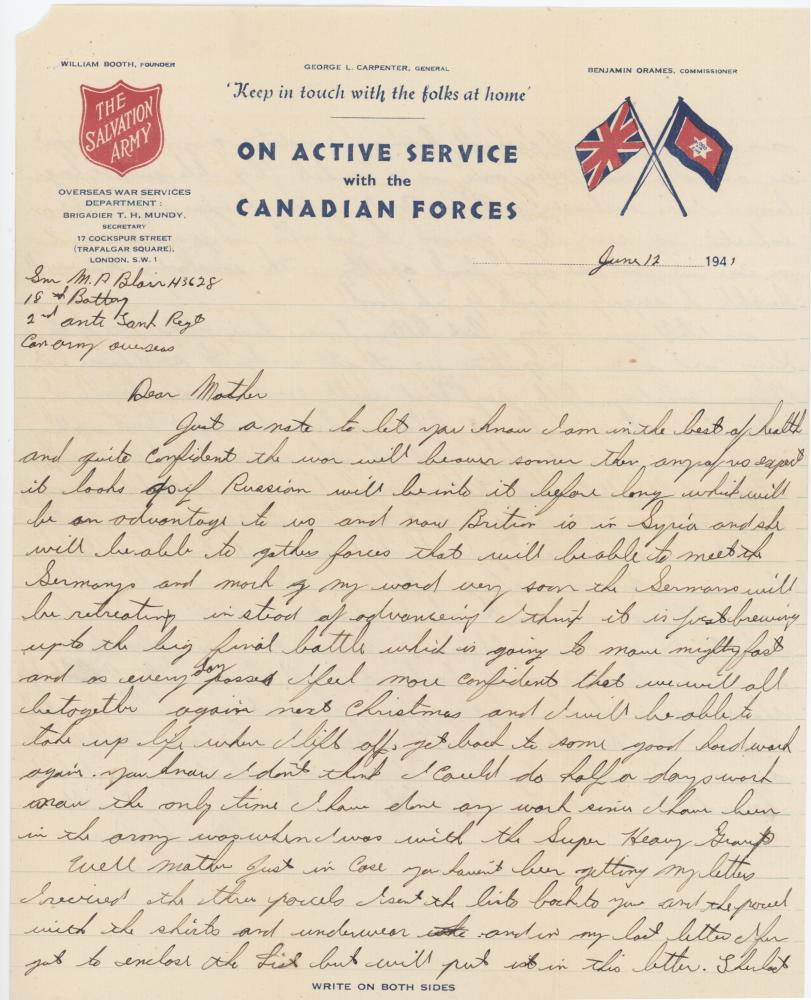 WILLIAM BOOTH, FOUNDER
GEORGE L. CARPENTER, GENERAL
BENJAMIN ORAMES, COMMISSIONER
THE
SALVATION
ARMY
'Keep in touch with the folks at home'
ON ACTIVE SERVICE
with the
CANADIAN FORCES
OVERSEAS WAR SERVICES
DEPARTMENT:
BRIGADIER T. H. MUNDY,
SECRETARY
17 COCKSPUR STREET
(TRAFALGAR SQUARE),
LONDON, S.W. 1
June 12 1941
Gnr M. P Blair H3628
18th Battery
2nd anti Tank Regt
Can army overseas
Dear Mother
Just a note to let you know I am in the best of health
and quite confident the war will be over sooner then any of us expect
it looks as if Russian will be into it before long which will
be an advantage to us and now Britian is in Syria and she
will be able to gather forces that will be able to meet the
Germanys and mark of my word very soon the Germans will
be retreating instead of advanceing I think it is just brewing
up to the big final battle which is going to move mighty fast
and as every day passes I feel more confident that we will all
be together again next Christmas and I will be able to
take up life where I left off, get back to some good hard work
again. you know I don't think I could do half a days work
now the only time I have done any work since I have been
in the army was when I was with the Super Heavy Group
Well mother just in case you haven't been getting my letters
I recived the three parcels I sent the lists back to you and the parcel
with the shirts and underwear and in my last letter I for
got to enclose the list but will put it in this letter. The last
WRITE ON BOTH SIDES